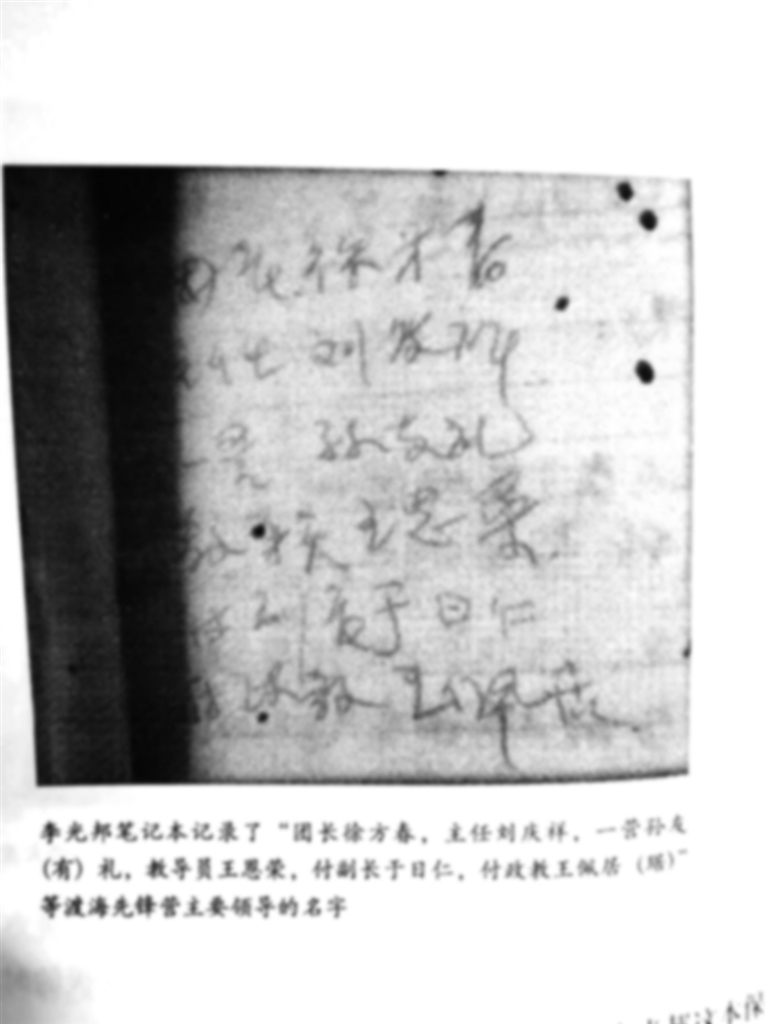 团长徐方春
主任刘庆祥
一营 孙友礼
教导员王恩荣
于日仁
王佩居
李光邦笔记本记录了“团长徐方春，主任刘庆祥，一营孙友
（有）礼，教导员王恩荣，付副长于日仁，付政教王佩居（琚）”
等渡海先锋营主要领导的名字
这本保